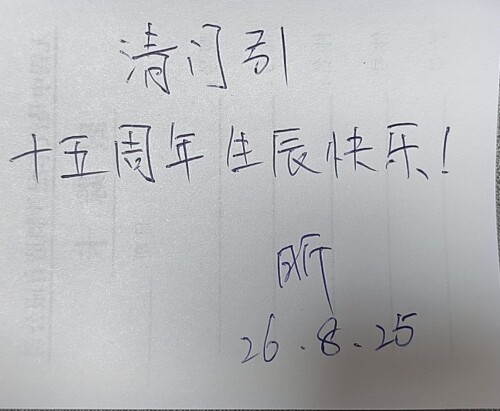 清门引
十五周年生辰快乐!
昕
26.8.25